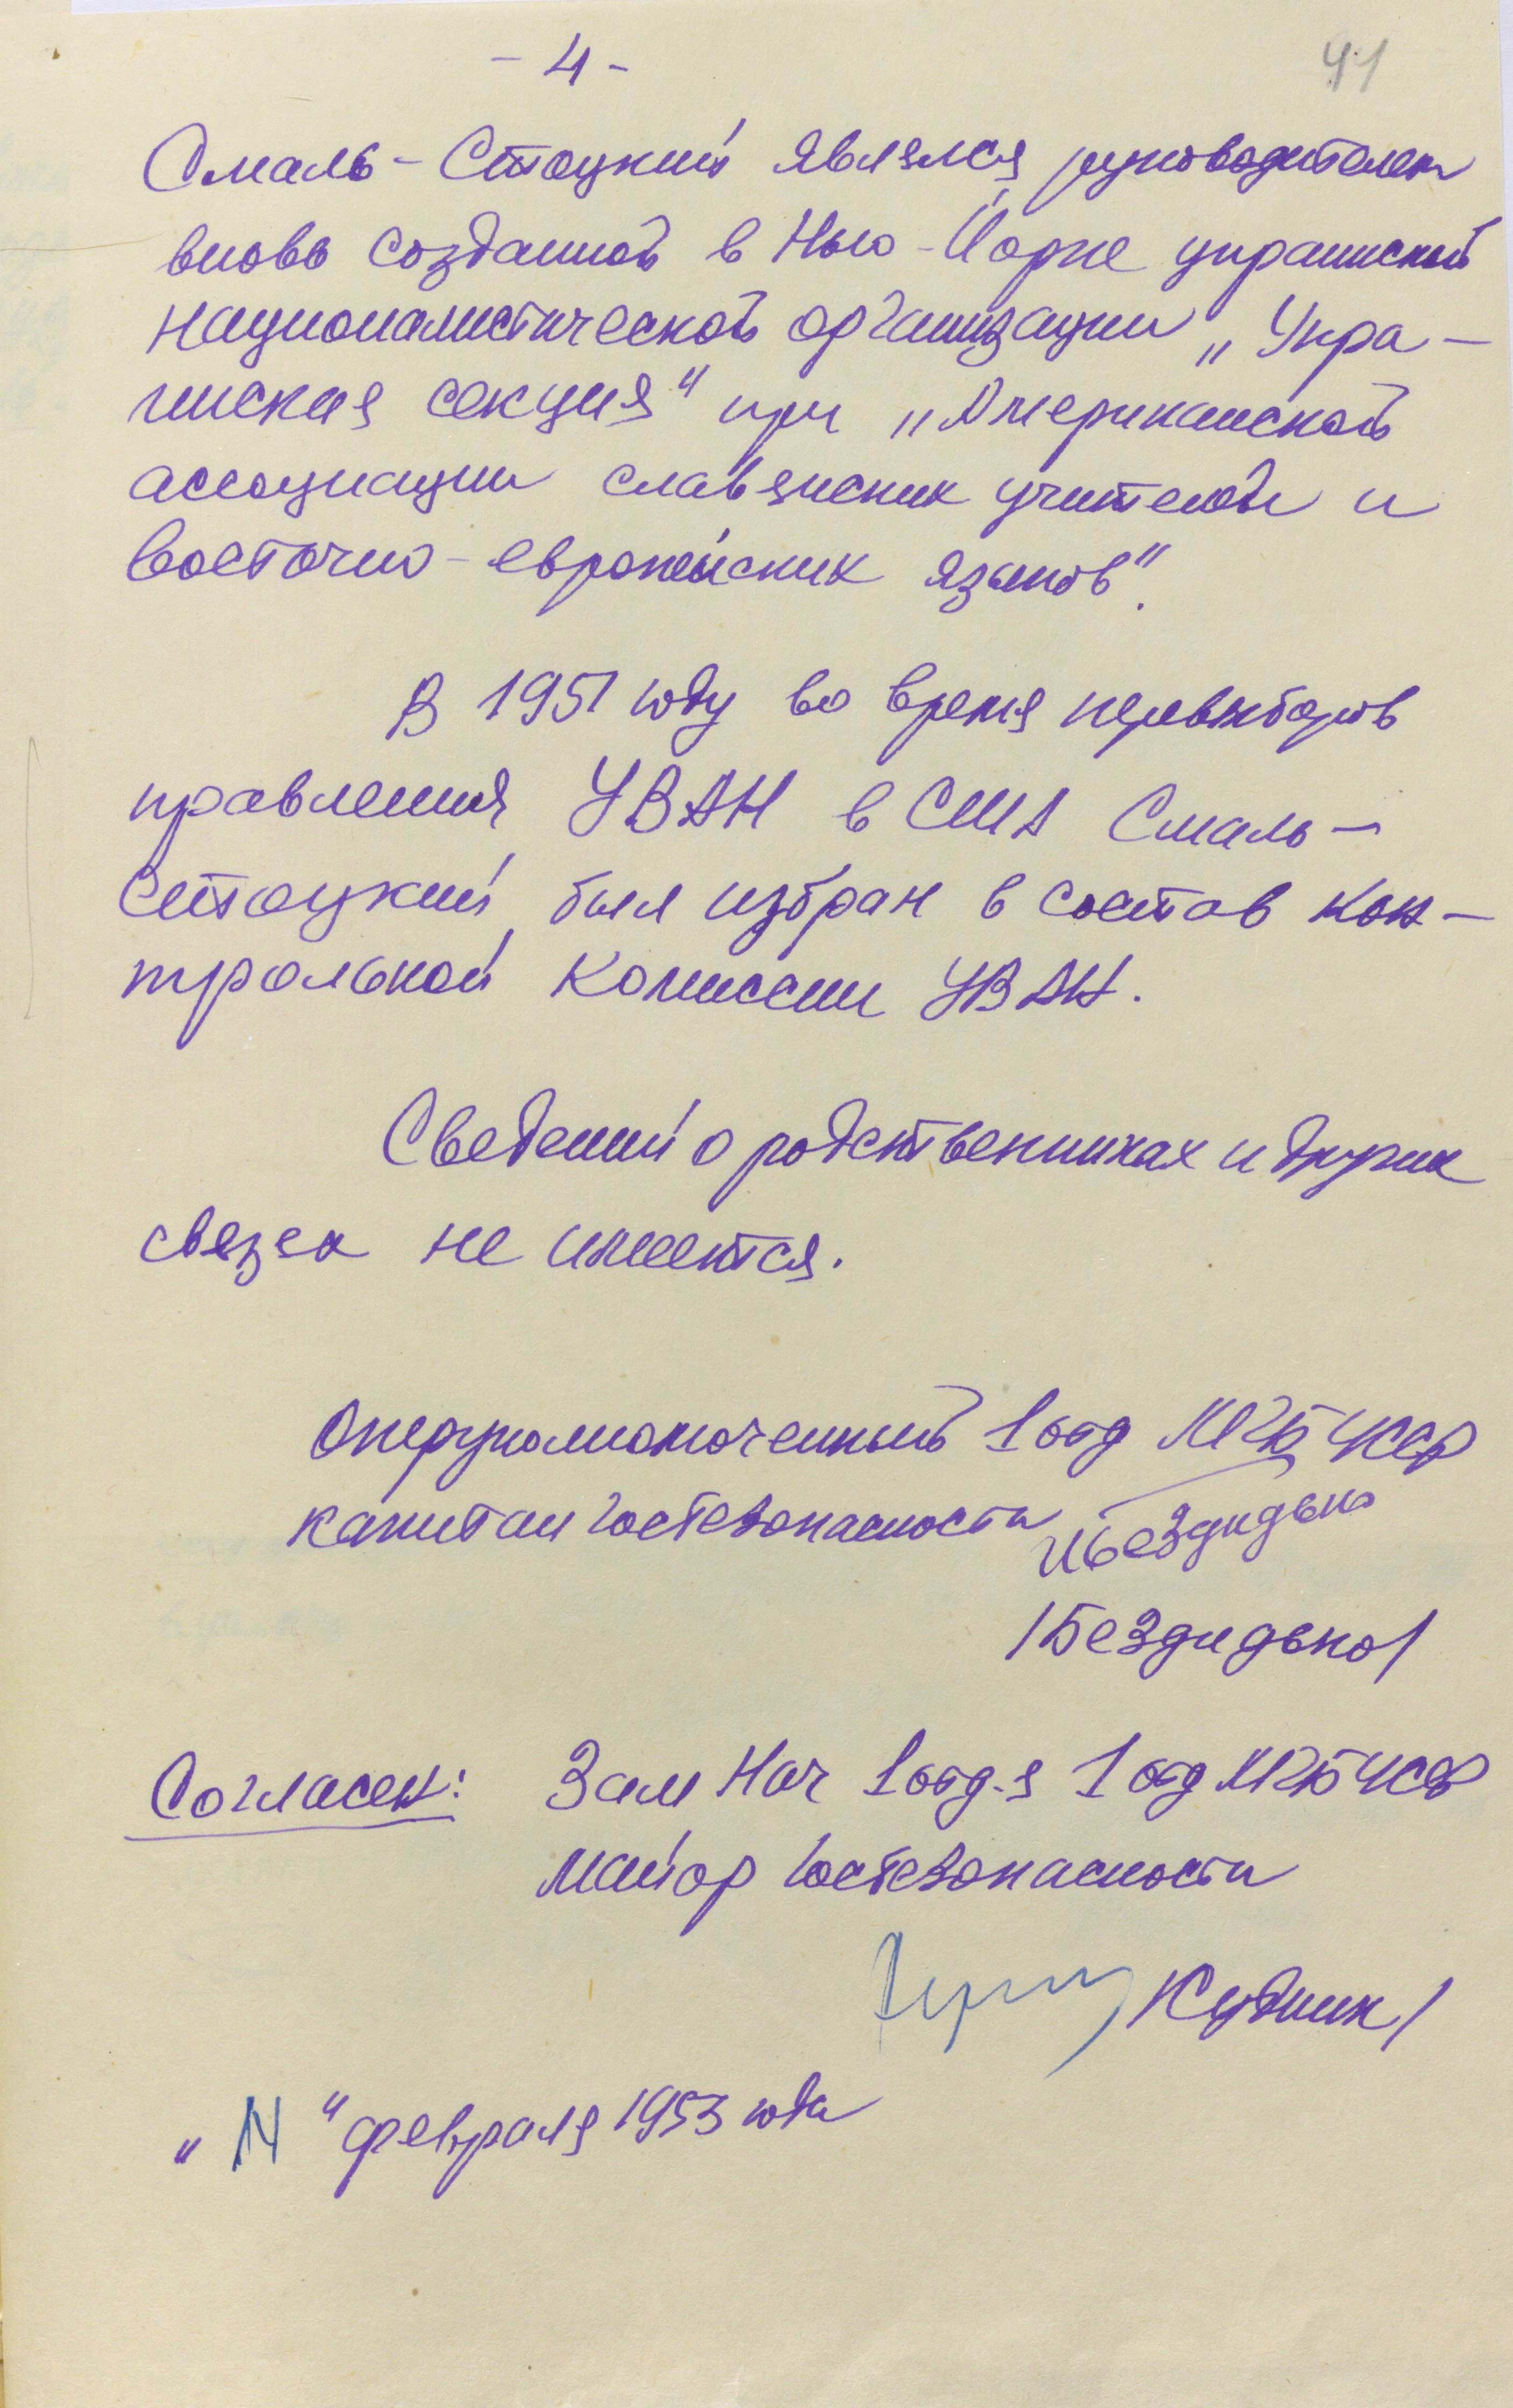 - 4 -
41
Смаль-Стоцкий являлся руководителем
вновь созданной в Нью-Йорке украинской
националистической организации „Укра-
инская секция" при „Американской
ассоциации славянских учителей и
восточно-европейских языков".
В 1951 году во время перевыборов
правления УВАН в США Смаль-
Стоцкий был избран в состав кон-
трольной комиссии УВАН.
Сведений о родственниках и других
связях не имеется.
Оперуполномоченный 1 отд МГБ УССР
капитан госбезопасности
Бездидько
/Бездидько/
Согласен: Зам Нач 1 отд-я 1 отд МГБ УССР
майор госбезопасности
/Кудник/
„14" февраля 1953 года